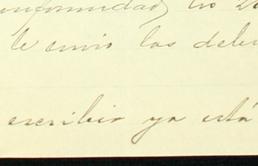 conformidad, no
le envio las
escribir ya está